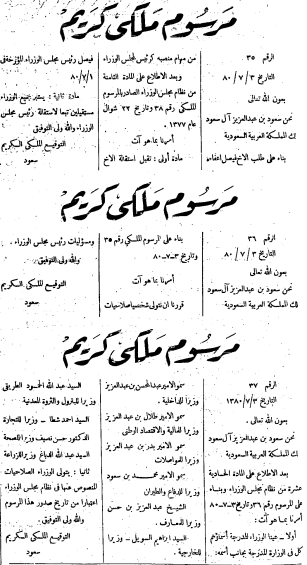 مرسوم ملكي كريم
الرقم ٣٥
التاريخ ٨٠/٧/٣
بعون الله تعالى
نحن سعود بن عبدالعزيز آل سعود
ملك المملكة العربية السعودية
بناء على طلب الاخ فيصل اعفاءه
من مهام منصبه كرئيس لمجلس الوزراء
وبعد الاطلاع على المادة الثامنة
من نظام مجلس الوزراء الصادر بالمرسوم
الملكي رقم ٣٨ وتاريخ ٢٢ شوال
عام ١٣٧٧
أمرنا بما هو آت
مادة أولى : تقبل استقالة الاخ
فيصل رئيس مجلس الوزراء المؤرخة في
٨٠/٧/١
مادة ثانية : يعتبر جميع الوزراء
مستقيلين تبعا لاستقالة رئيس مجلس
الوزراء والله ولي التوفيق
التوقيع الملكي الكريم
سعود
مرسوم ملكي كريم
الرقم ٣٦
التاريخ ٨٠/٧/٣
بعون الله تعالى
نحن سعود بن عبدالعزيز آل سعود
ملك المملكة العربية السعودية
بناء على المرسوم الملكي رقم ٣٥
وتاريخ ٣-٧-٨٠
أمرنا بما هو آت
قررنا ان نتولى شخصيا صلاحيات
ومسؤليات رئيس مجلس الوزراء .
والله ولي التوفيق .
التوقيع الملكي الكريم
سعود
مرسوم ملكي كريم
الرقم ٣٧
التاريخ ١٣٨٠/٧/٣
بعون الله تعالى
نحن سعود بن عبدالعزيز آل سعود
ملك المملكة العربية السعودية
بعد الاطلاع على المادة الحادية
عشرة من نظام مجلس الوزراء وبناء
على المرسوم رقم ٣٦ وتاريخ ٣-٧-٨٠
أمرنا بما هو آت :
أولا - عينا الوزراء المدرجة أسماؤهم
كل في الوزارة المدرجة بجانب أسمه :
سمو الامير عبدالمحسن بن عبدالعزيز
وزيرا للداخلية .
سمو الامير طلال بن عبد العزيز
وزيرا للمالية والاقتصاد الوطني
سمو الامير بدر بن عبد العزيز
وزيرا للمواصلات
سمو الامير محمد بن سعود
وزيرا للدفاع والطيران
الشيخ عبد العزيز بن حسن
وزيرا للمعارف .
السيد ابراهيم السويل - وزيرا
للخارجية .
السيد عبد الله الحمود الطريقي
وزيرا للبترول والثروة المعدنية
السيد احمد شطا - وزيرا للتجارة
الدكتور حسن نصيف وزيرا للصحة
السيد عبد الله الدباغ وزيرا للزراعة
ثانيا : يتولى الوزراء الصلاحيات
المنصوص عنها في نظام مجلس الوزراء
اعتبارا من تاريخ صدور هذا المرسوم
والله ولي التوفيق .
التوقيع الملكي الكريم
سعود